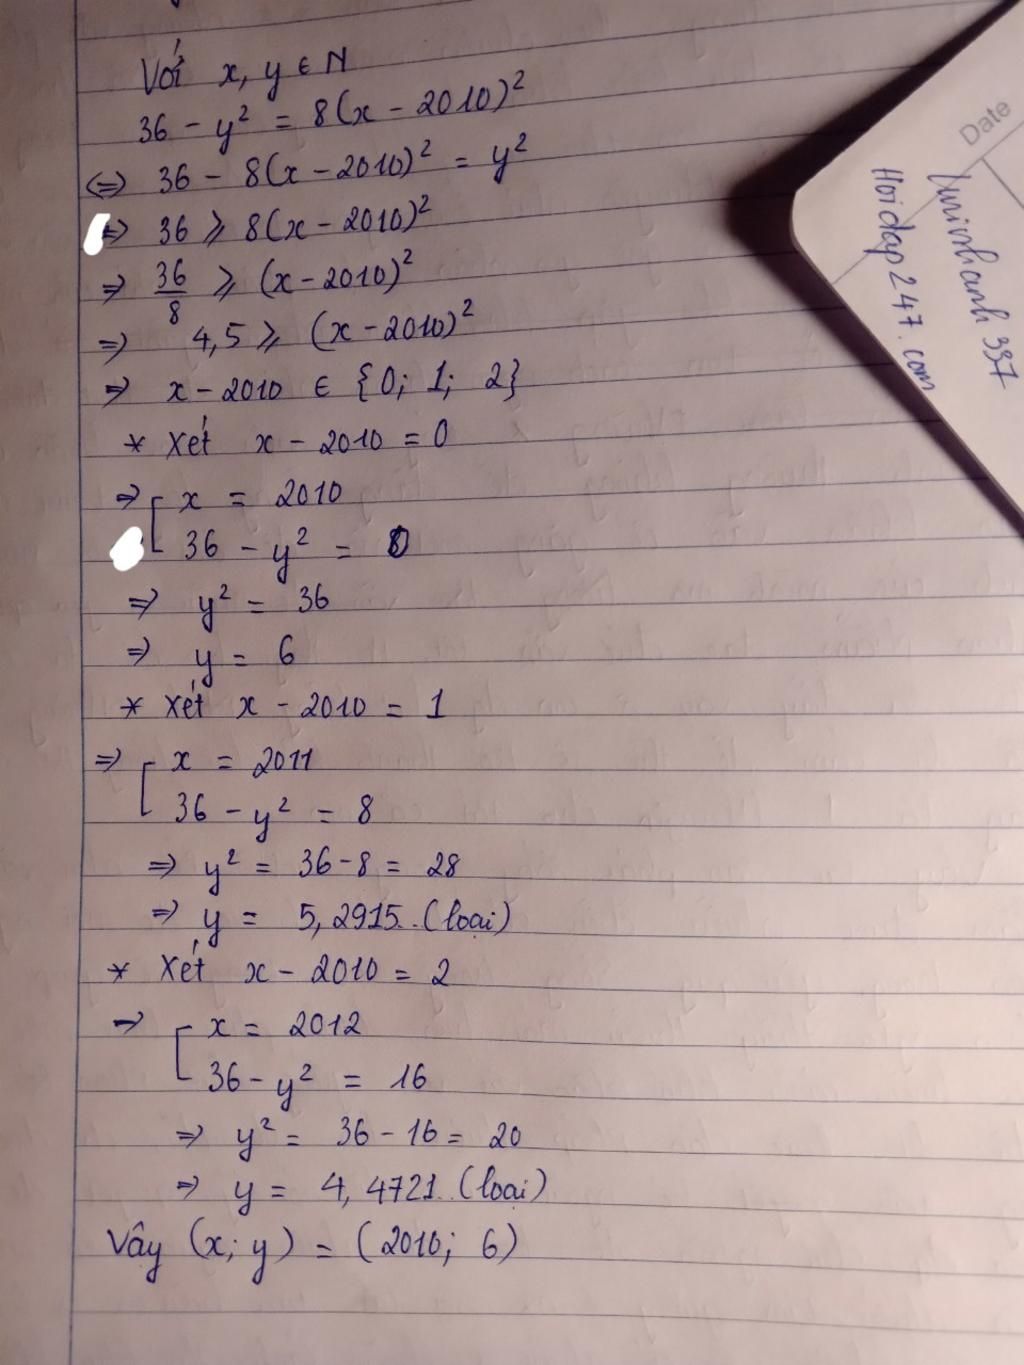 Với x, y ∈ N
36 - y² = 8(x - 2010)²
⇔ 36 - 8(x - 2010)² = y²
⇒ 36 ⩾ 8(x - 2010)²
⇒ 36/8 ⩾ (x - 2010)²
⇒ 4,5 ⩾ (x - 2010)²
⇒ x - 2010 ∈ {0; 1; 2}
* Xét x - 2010 = 0
⇒ [ x = 2010
36 - y² = 0
⇒ y² = 36
⇒ y = 6
* Xét x - 2010 = 1
⇒ [ x = 2011
36 - y² = 8
⇒ y² = 36 - 8 = 28
⇒ y = 5,2915.. (loại)
* Xét x - 2010 = 2
⇒ [ x = 2012
36 - y² = 16
⇒ y² = 36 - 16 = 20
⇒ y = 4,4721.. (loại)
Vậy (x; y) = (2010; 6)
Date
Hoidap247.com